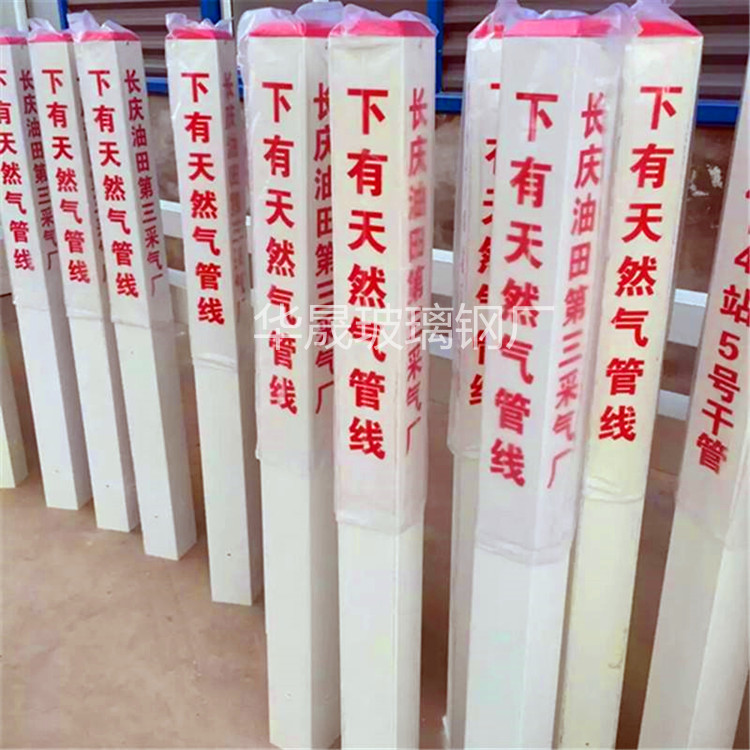 下有天然气管线
下有天然气管线
下有天然气管线
长庆油田第三采气厂
下有天然气管线
下有天然气管线
长庆油田第三采气厂
下有天然气管线
长庆油田第三采气厂
下有天然气管线
长庆油田第三采气厂
下有天然气管线
4站5号干管
华晟玻璃钢厂